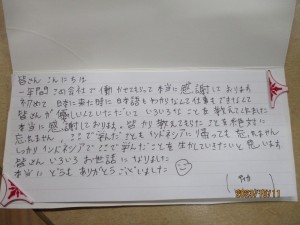 皆さん こんにちは
一年間 この会社で働かせてもらって本当に感謝しております
初めて 日本に来た時に日本語もわかりなくて仕事もできなくて
皆さんが優しくしていただいて いろいろなことを教えてくれました
本当に感謝しております。皆から教えてもらったことを絶対に
忘れません。ここで学んだこともインドネシアに帰っても忘れません
しっかりインドネシアでここで学んだことを生かしていきたいと思います
皆さん いろいろ お世話になりました
本当に どうも ありがとうございました